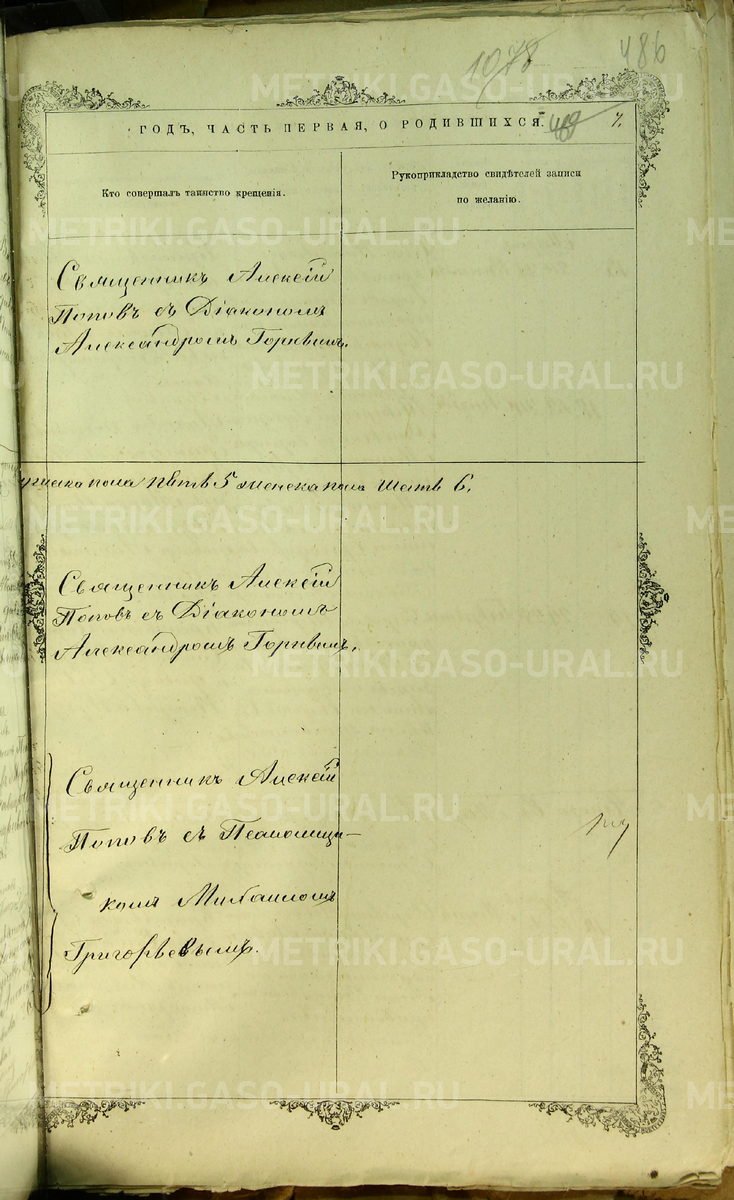 1078
486
ГОДЪ, ЧАСТЬ ПЕРВАЯ, О РОДИВШИХСЯ.
7.
Кто совершалъ таинство крещенія.
Рукоприкладство свидѣтелей записи
по желанію.
Священникъ Алексій
Поповъ съ Діакономъ
Александромъ
пола пять 5 женска пола шесть 6.
Священникъ Алексій
Поповъ съ Діакономъ
Александромъ
Священникъ Алексій
Поповъ съ Псаломщи-
комъ Михаиломъ
Григорьевымъ.
METRIKI.GASO-URAL.RU